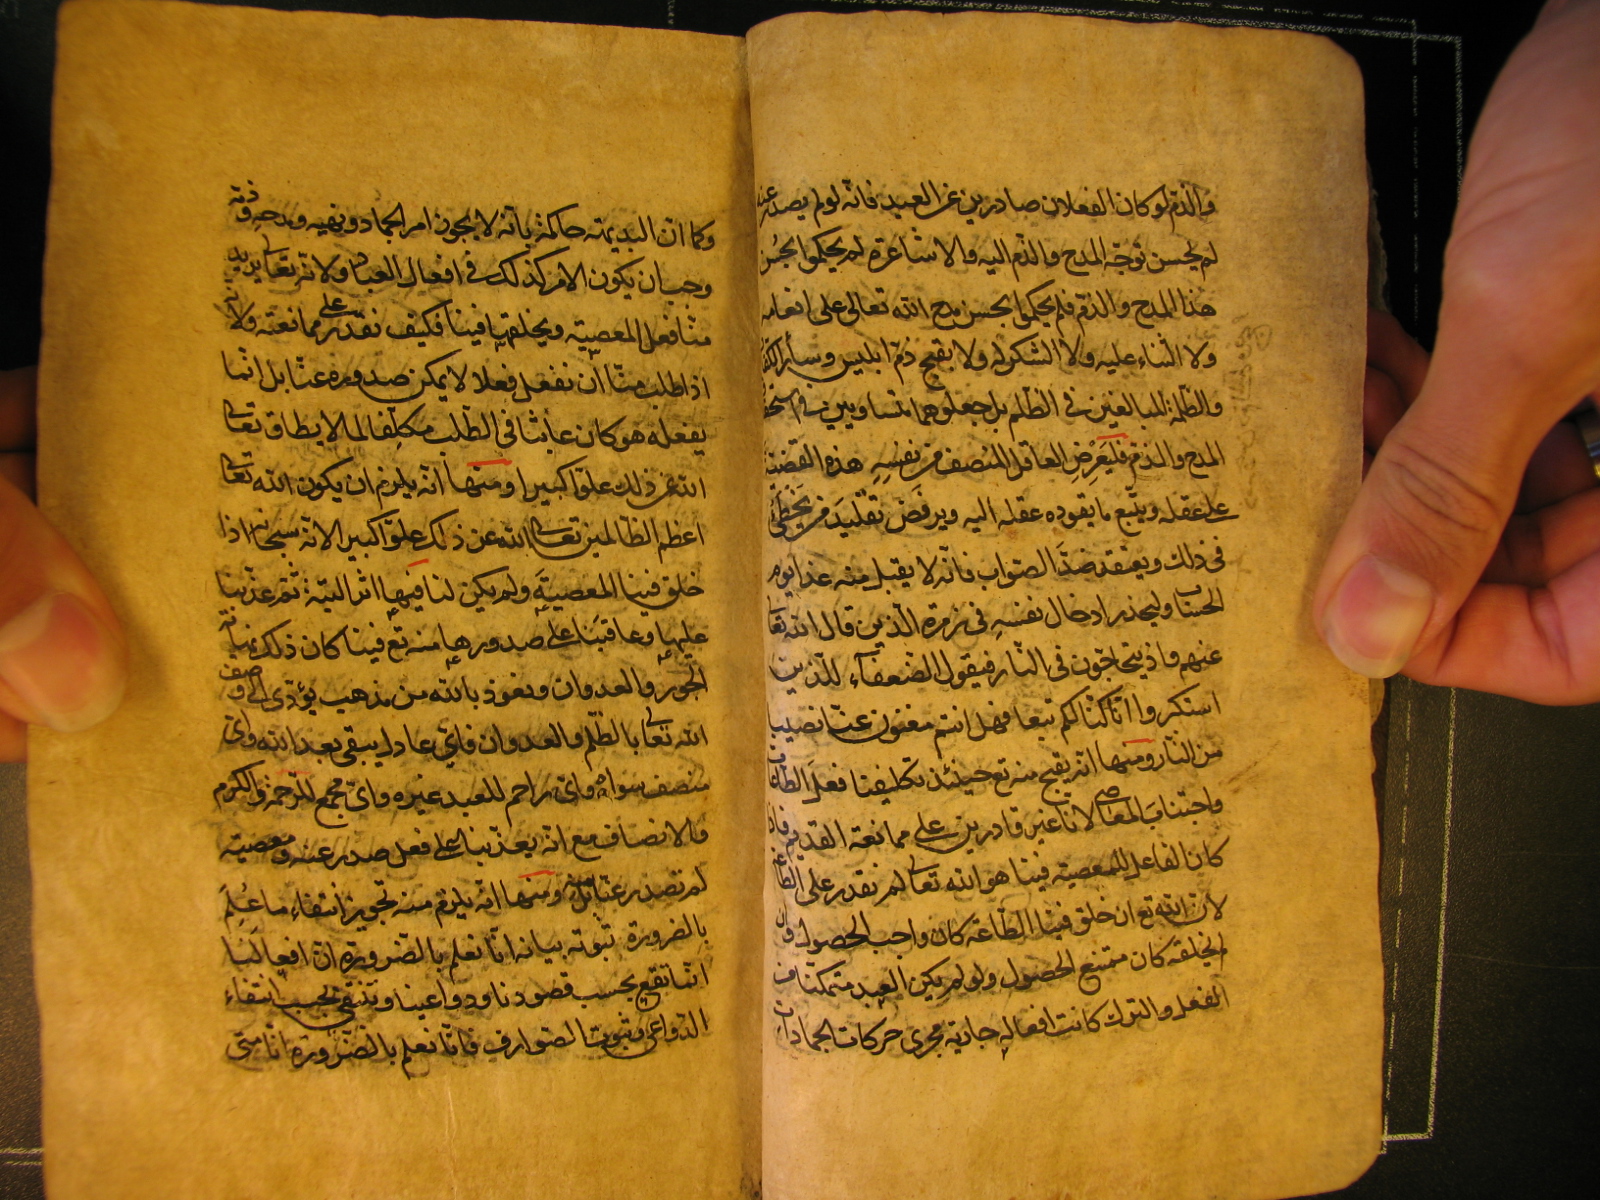 والذم لو كان الفعلان صادرين عن العبد فانه لو لم يصدر عنه
لم يحسن توجه المدح والذم اليه والاشاعرة لم يحكموا بحسن
هذا المدح والذم فلم يحكموا بحسن مدح الله تعالى على انعامه
ولا الثناء عليه ولا الشكر له ولا بقبح ذم ابليس وسائر الكفار
والظلمة المبالغين في الظلم بل جعلوهما متساويين في استحقاق
المدح والذم فليعرض العاقل المنصف من نفسه هذه القضية
على عقله ويتبع ما يقوده عقله اليه ويرفض تقليد من يخطئ
في ذلك ويعتقد ضد الصواب فانه لا يقبل منه غدا يوم
الحساب وليحذر ادخال نفسه في زمرة الذين قال الله تعالى
عنهم واذ يتحاجون في النار فيقول الضعفاء للذين
استكبروا انا كنا لكم تبعا فهل انتم مغنون عنا نصيبا
من النار ومنها انه يقبح منه تع حينئذ تكليفنا فعل الطاعات
واجتناب المعاصي لانا غير قادرين على ممانعة القديم فاذا
كان الفاعل للمعصية فينا هو الله تعالى لم نقدر على الطاعة
لان الله تع ان خلق فينا الطاعة كان واجب الحصول وان
لم يخلقه كان ممتنع الحصول ولو لم يكن العبد متمكنا من
الفعل والترك كانت افعاله جارية مجرى حركات الجمادات
وكما ان البديهة حاكمة بانه لا يجوز امر الجماد ونهيه ومدحه وذمه
وجب ان يكون الامر كذلك في افعال العباد ولانه تعالى يريد
منا فعل المعصية ويخلقها فينا فكيف نقدر على ممانعته ولانه
اذا طلب منا ان نفعل فعلا لا يمكن صدوره عنا بل انما
يفعله هو كان عابثا في الطلب مكلفا لما لا يطاق تعالى
الله عن ذلك علوا كبيرا ومنها انه يلزم ان يكون الله تعالى
اعظم الظالمين تعالى الله عن ذلك علوا كبيرا لانه سبحانه اذا
خلق فينا المعصية ولم يكن لنا فيها اثر البتة ثم عذبنا
عليها وعاقبنا على صدورها منه تع فينا كان ذلك نهاية
الجور والعدوان ونعوذ بالله من مذهب يؤدى الى وصف
الله تعالى بالظلم والعدوان فاي عادل يبقى بعد الله واي
منصف سواه واي راحم للعبد غيره واي مجمع للرحمة والكرم
والانصاف مع انه يعذبنا على فعل صدر عنه ومعصية
لم تصدر عنا بل منه ومنها انه يلزم منه تجويز انتفاء ما علم
بالضرورة ثبوته بيانه انا نعلم بالضرورة ان افعالنا
انما تقع بحسب قصودنا ودواعينا وتنتفي بحسب انتفاء
الدواعي وثبوت الصوارف فانا نعلم بالضرورة انا متى